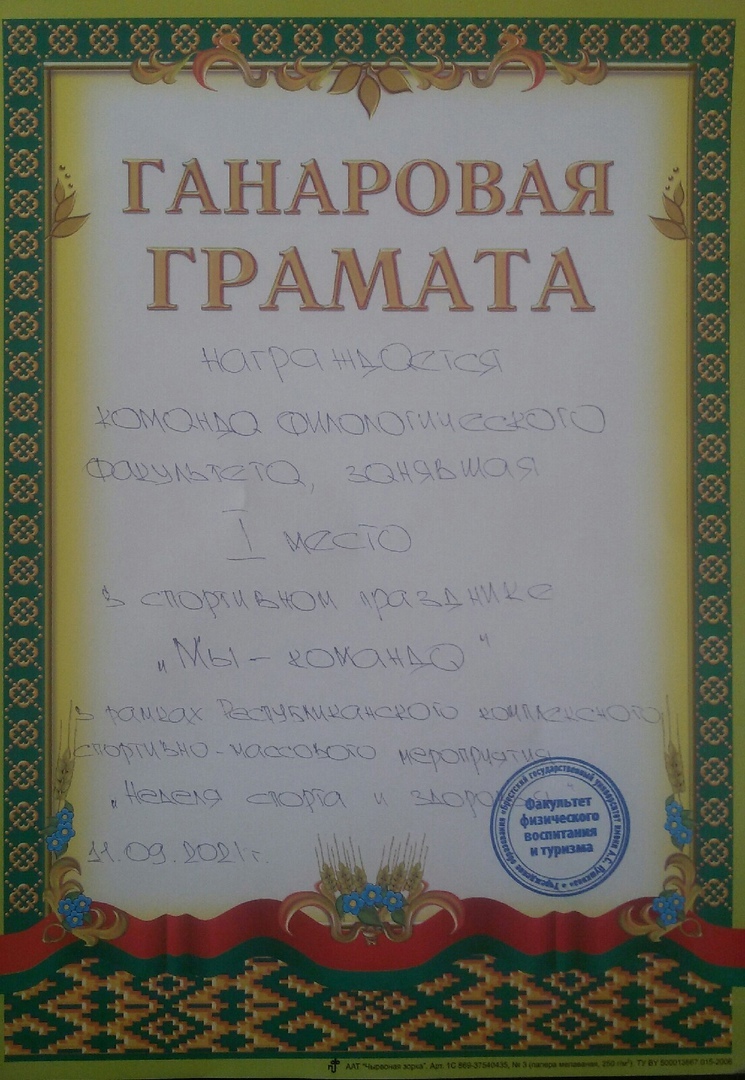 ГАНАРОВАЯ
ГРАМАТА
награждается
команда филологического
факультета, занявшая
I место
в спортивном празднике
„Мы - команда"
в рамках Республиканского комплексного
спортивно-массового мероприятия
„Неделя спорта и здоровья"
11.09.2021г.
Учреждение образования «Брестский государственный университет имени А.С. Пушкина»
Факультет
физического
воспитания
и туризма
ААТ "Чырвоная зорка". Арт. 1С 869-37540435, № 3 (папера меламаная, 250 г/м²). ТУ BY